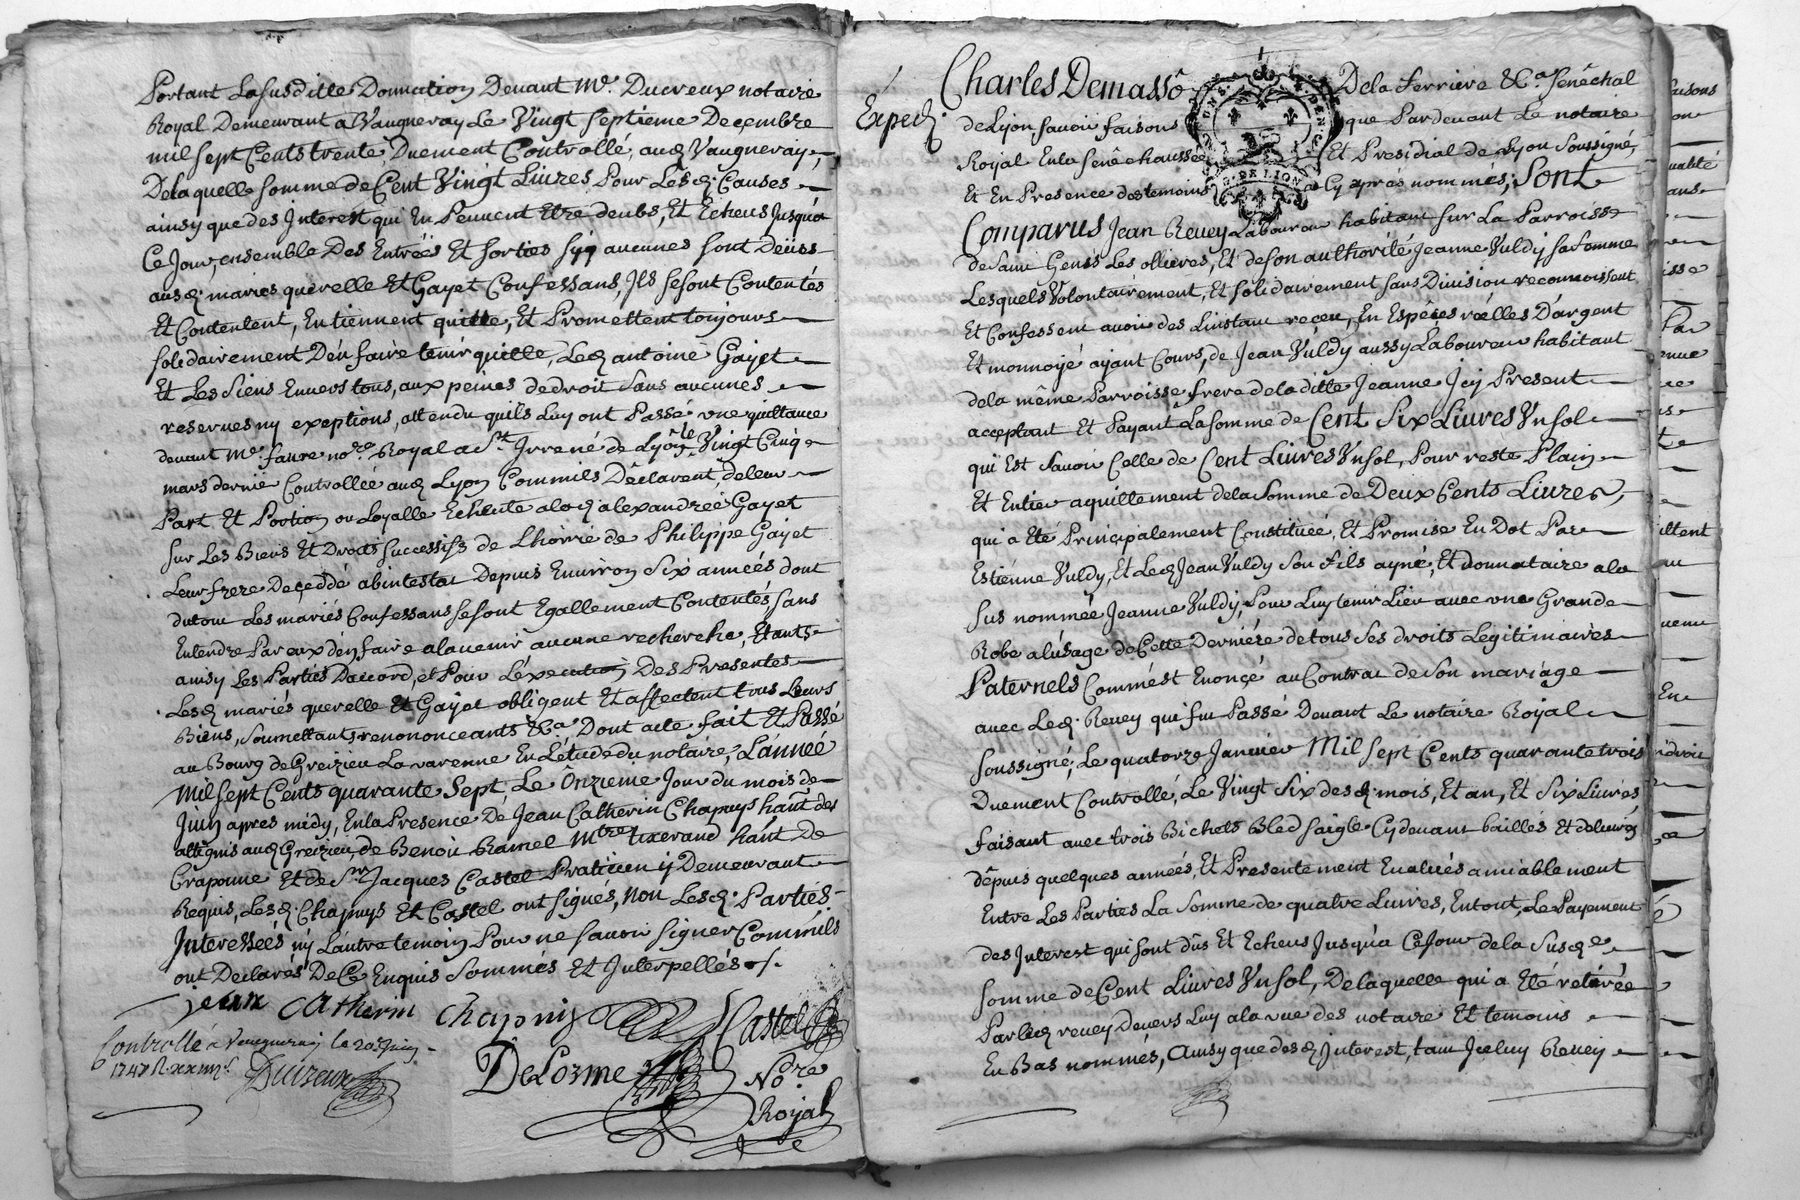 Portant La susditte Donnation Devant Me. Ducreux notaire
Royal Demeurant a Vaugneray Le Vingt septieme Decembre
mil sept Cents trente Duement Controllé, aud Vaugneray,
De laquelle somme de Cent Vingt Livres Pour Lesd. Causes
ainsy que des Interest qui En Peuvent Etre deubs, Et Echeus Jusqu'a
Ce Jour, ensemble Des Entrées Et sorties sy aucunes sont Deües
ausd. mariés querelle Et Gayet Confessans, Ils se sont Contentés
Et Contentent, En tiennent quitte, Et Promettent toujours
solidairement D'en faire tenir quitte, Led antoine Gayet
Et Les siens Envers tous, aux peines de droit sans aucunes
reserves ny exeptions, attendu quils Luy ont Passé une quittance
devant Me. faure nore Royal a St. Irrené de Lyon le Vingt Cinq
mars dernié Controllée aud Lyon Commils Déclarent, de leur
Part Et Portion ou Loyalle Echeute alod alexandreé Gayet
sur Les Biens Et Droits successifs de L'horrié de Philippe Gayet
Leur frere Deçeddé abintestat Depuis Environ Six années dont
du tout Les mariés Confessans se sont Egallement Contentés, sans
Entendre Par eux d'en faire a l'avenir aucune recherche, Etants
ainsy Les Parties D'accord, et Pour L'execution Des Presentes
Lesd mariés querelle Et Gayet obligent Et affectent tous Leurs
Biens, soumettants renononceants &a. Dont acte fait Et Passé
au Bourg de Greizieu La varenne En L'étude du notaire, L'année
Mil sept Cents quarante Sept Le Onzieme Jour du mois de
Juin apres midy, En la Presence De Jean Catherin Chapuys hant des
attignis aud Greizieu, de Benoit Ramel Mtre tixerand hant De
Craponne Et de Sr. Jacques Castel Praticien y Demeurant
Requis, Lesd. Chapuys Et Castel ont signés, Non Lesd. Parties
Interessées ny L'autre temoin Pour ne savoir signer Commils
ont Declarés De Ce Enquis sommés Et Interpellés
jean catherin chapuis Castel
Controllé a Vaugneray le 20e Juin
1747 R. xxiiijs. Ducreux DeLorme Nore
Royal
Expedi.
Charles Demasso De la ferriere &a. senêchal
de Lyon, savoir faisons que Pardevant Le notaire
Royal En la senêchaussée Et Presidial de Lyon soussigné,
Et En Presence des temoins Cy aprés nommés; Sont
GENE DE LYON
Comparus Jean Revey Laboureur habitant sur La Parroisse
de Saint Genis Les ollieres, Et de son authorité Jeanne Vuldy sa femme
Lesquels Volontairement, Et solidairement sans Division reconnoissent
Et Confessent avoir des L'instant reçeu, En Espéces réelles D'argent
Et monnoyé ayant Cours, de Jean Vuldy aussy Laboureur habitant
de la même Parroisse frere de la ditte Jeanne Icy Present
acceptant Et Payant La somme de Cent Six Livres Un sol
qui Est savoir Celle de Cent Livres Un sol, Pour reste Plain
Et Entier aquittement de la somme de Deux Cents Livres,
qui a Eté Principalement Constituée, Et Promise En Dot Par
Estienne Vuldy, Et Led Jean Vuldy son fils ayné, Et donnataire a la
sus nommée Jeanne Vuldy, Pour Luy tenir Lieu avec une Grande
Robe a l'usage de Cette Derniére de tous ses droits Legitimaires
Paternels Comm'est Enonçé au Contrat de son mariage
avec Led. Revey qui fut Passé Devant Le notaire Royal
soussigné, Le quatorze Janvier Mil sept Cents quarante trois
Duement Controllé, Le Vingt six desd. mois, Et an, Et Six Livres
faisant avec trois Bichets Bled saigle Cy devant baillés Et delivrés
dépuis quelques années, Et Presentement Evalués amiablement
Entre Les Parties La somme de quatre Livres, En tout, Le Payement
des Interest qui sont dûs Et Echeus Jusqu'a Ce Jour de la Susde
somme de Cent Livres Un sol, De laquelle qui a Eté retirée
Par led revey Devers Luy a la vue des notaire Et temoins
En Bas nommés, ainsy que desd Interest, tant Iceluy Revey